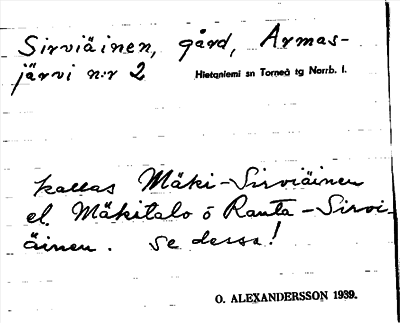 Sirviäinen, gård, Armas-
järvi n:r 2
Hietaniemi sn Torneå tg Norrb. l.
kallas Mäki-Sirviäinen
el. Mäkitalo o Ranta-Sirvi-
äinen. Se dessa!
O. ALEXANDERSSON 1939.